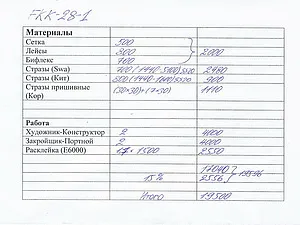 FKK-28-1
Материалы
Сетка 500
Лейсы 800 2000
Бифлекс 700
Стразы (Swa) 2980
Стразы (Кит) 900
Стразы пришивные
(Кор) (50×30)+(7×30) 1110
Работа
Художник-Конструктор 2 4000
Закройщик-Портной 2 4000
Расклейка (E6000) 1500 2550
17040
15% 2556 19596
Итого 19500